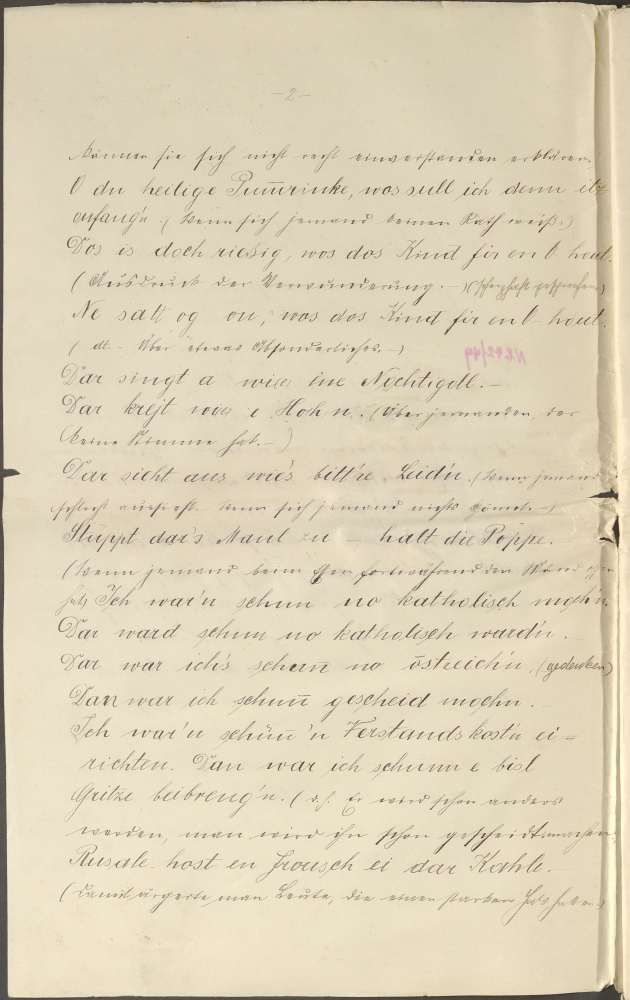 -2-
können sie sich nicht recht einverstanden erklären.
O du heilige Pum̅rinke, wos sull ich denn itz
onfang'n. (Wenn sich jemand keinen Rath weiß.)
Dos is doch riesig, wos dos Kind fir en O hout.
(Ausdruck der Verwunderung. -) (scherzhaft gesprochen)
Ne satt og on, wos dos Kind fir en O hout.
( dt. - Über etwas Absonderliches. -)
N 242/49
Dar singt a wie ine Nochtigall. -
Dar krejt wie e Hohn. (Über jemanden, der
keine Stimme hat. -)
Dar sieht aus wie's bitt're Leid'n. (Wenn jemand
schlecht aussieht. Wenn sich jemand nichts gönnt. -)
Stuppt dar's Maul zu - halt die Poppe. -
(Wenn jemand beim fortwährend den Mund offen
hat) Ich war'n schun no katholisch moch'n.
Dar ward schun no katholisch ward'n. -
Dar war ich's schun̅ no östreich'n. (gedenken)
Dan war ich schun̅ gescheid mochn. -
Ich war'n schun̅ 'n Verstandskost'n ei =
richten. Dan war ich schunn e bisl
Gritze beibreng'n. (d. h. Er wird schon anders
werden, man wird ihn schon gescheidt machen.)
Rusale host en Frousch ei dar Kahle. -
(Damit ärgerte man Leute, die einen starken Hals haben.)